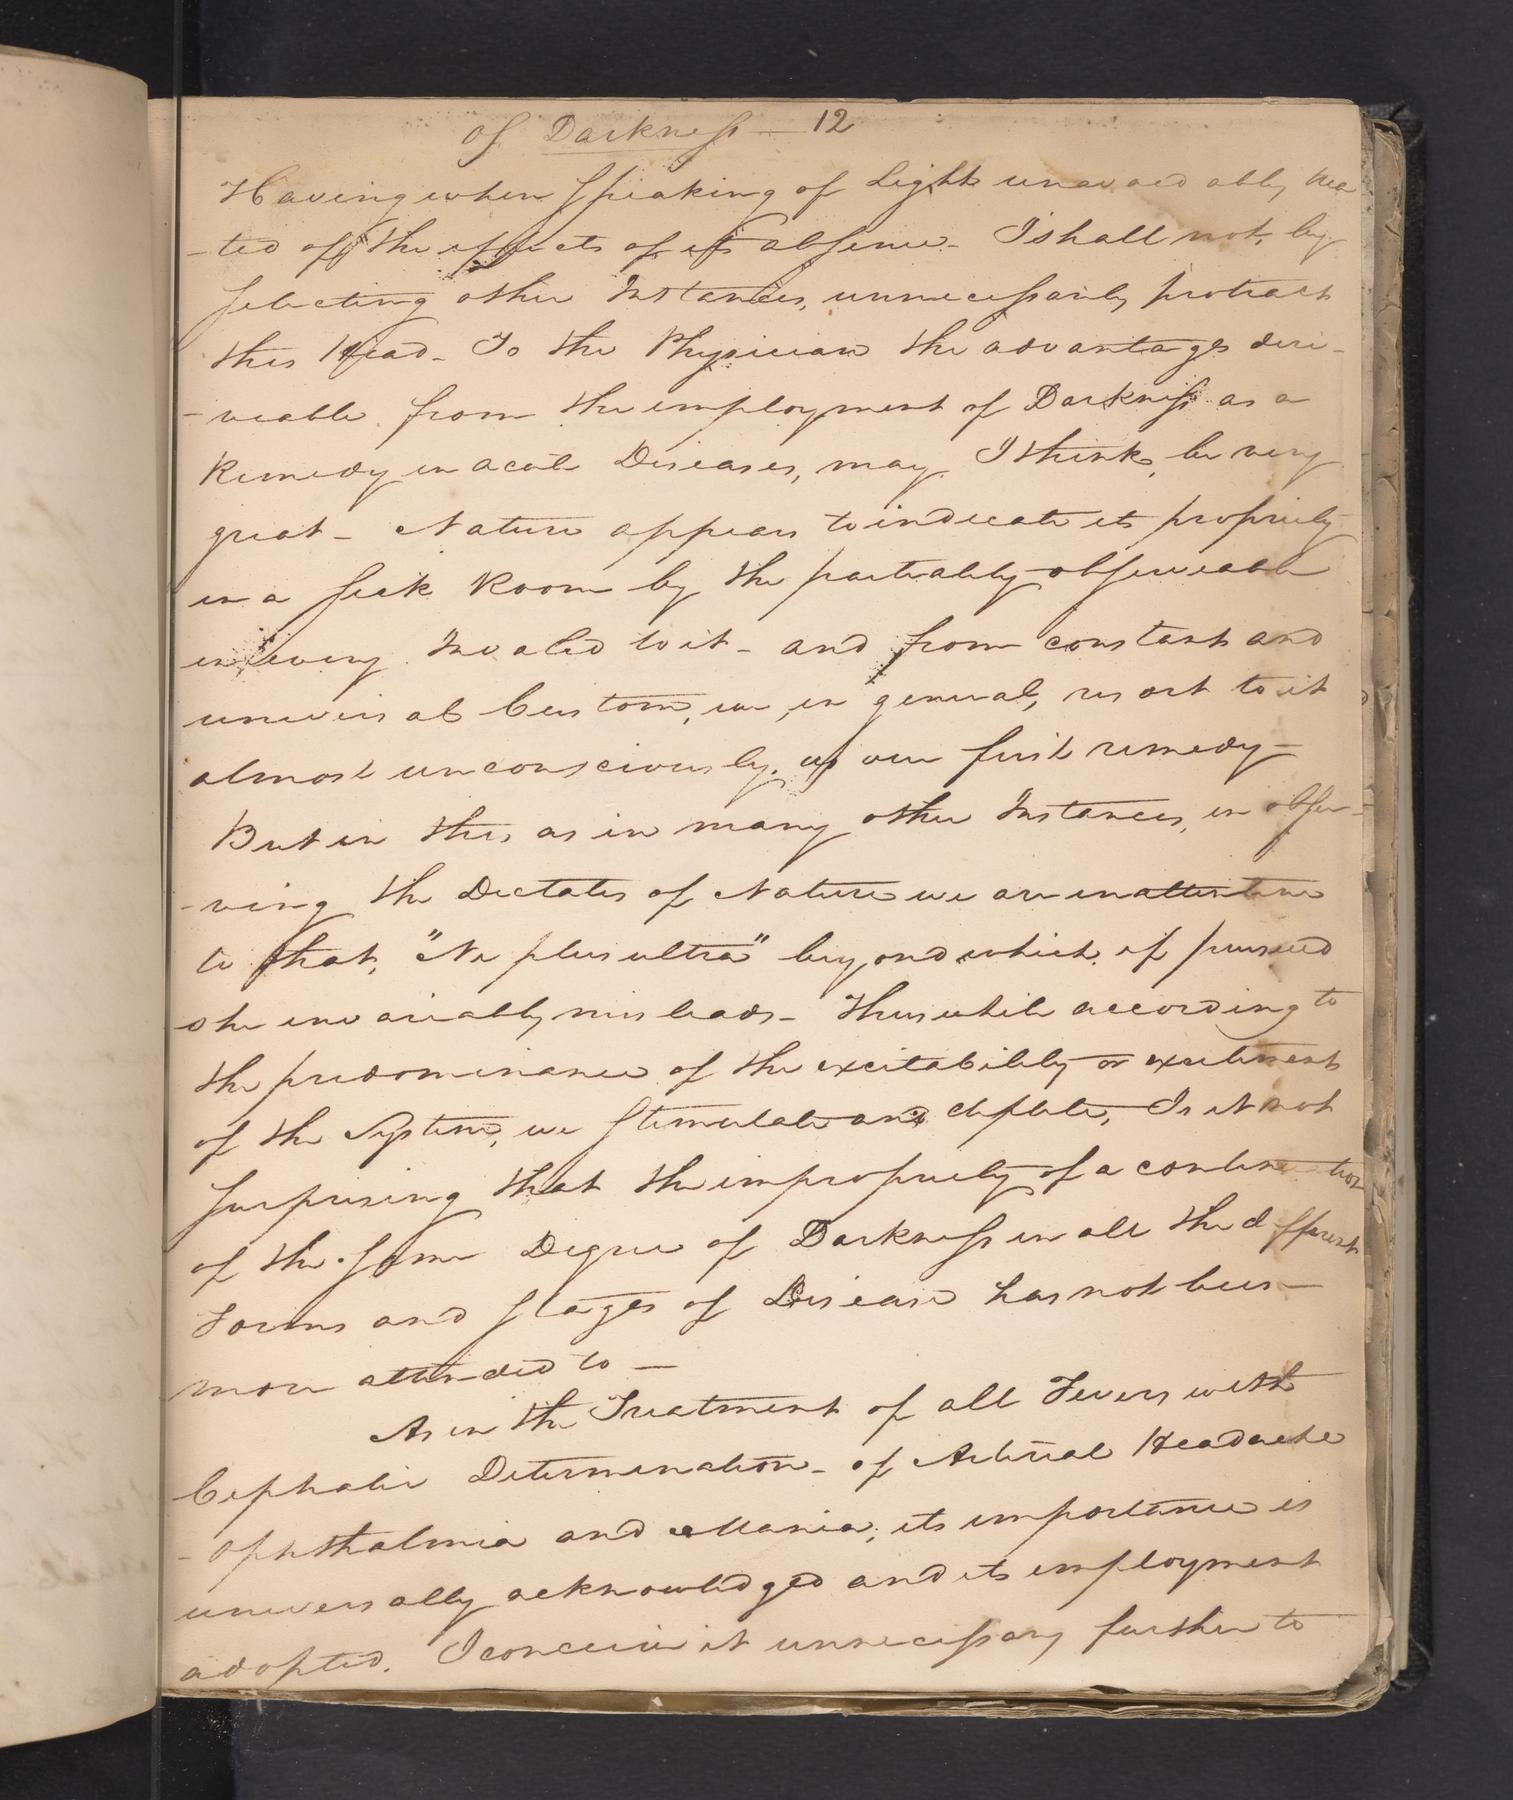 of Darkness — 12
Having when speaking of Light unavoidably trea
-ted of the effects of its absence - I shall not, by
selecting other Instances, unnecessarily protract
this Head - To the Physician the advantages deri-
-veable from the employment of Darkness as a
Remedy in acute Diseases, may, I think, be very
great - Nature appears to indicate its propriety
in a sick Room by the partiality observeable
in every Invalid to it - and from constant and
universal Custom, we, in general, resort to it
almost unconsciously, as our first remedy -
But in this as in many other Instances, in obser-
-ving the Dictates of Nature we are inattentive
to that, "Ne plus ultra" beyond which, if pursued
she invariably misleads - Thus while according to
the predominance of the excitability or excitement
of the System, we stimulate and deplete, Is it not
surprising that the impropriety of a continuation
of the same Degree of Darkness in all the different
Forms and stages of Disease has not been -
more attended to —
As in the Treatment of all Fevers with
Cephalic Determination - of Arterial Headache
- Ophthalmia and Mania, its importance is
universally acknowledged and its employment
adopted. I conceive it unnecessary further to